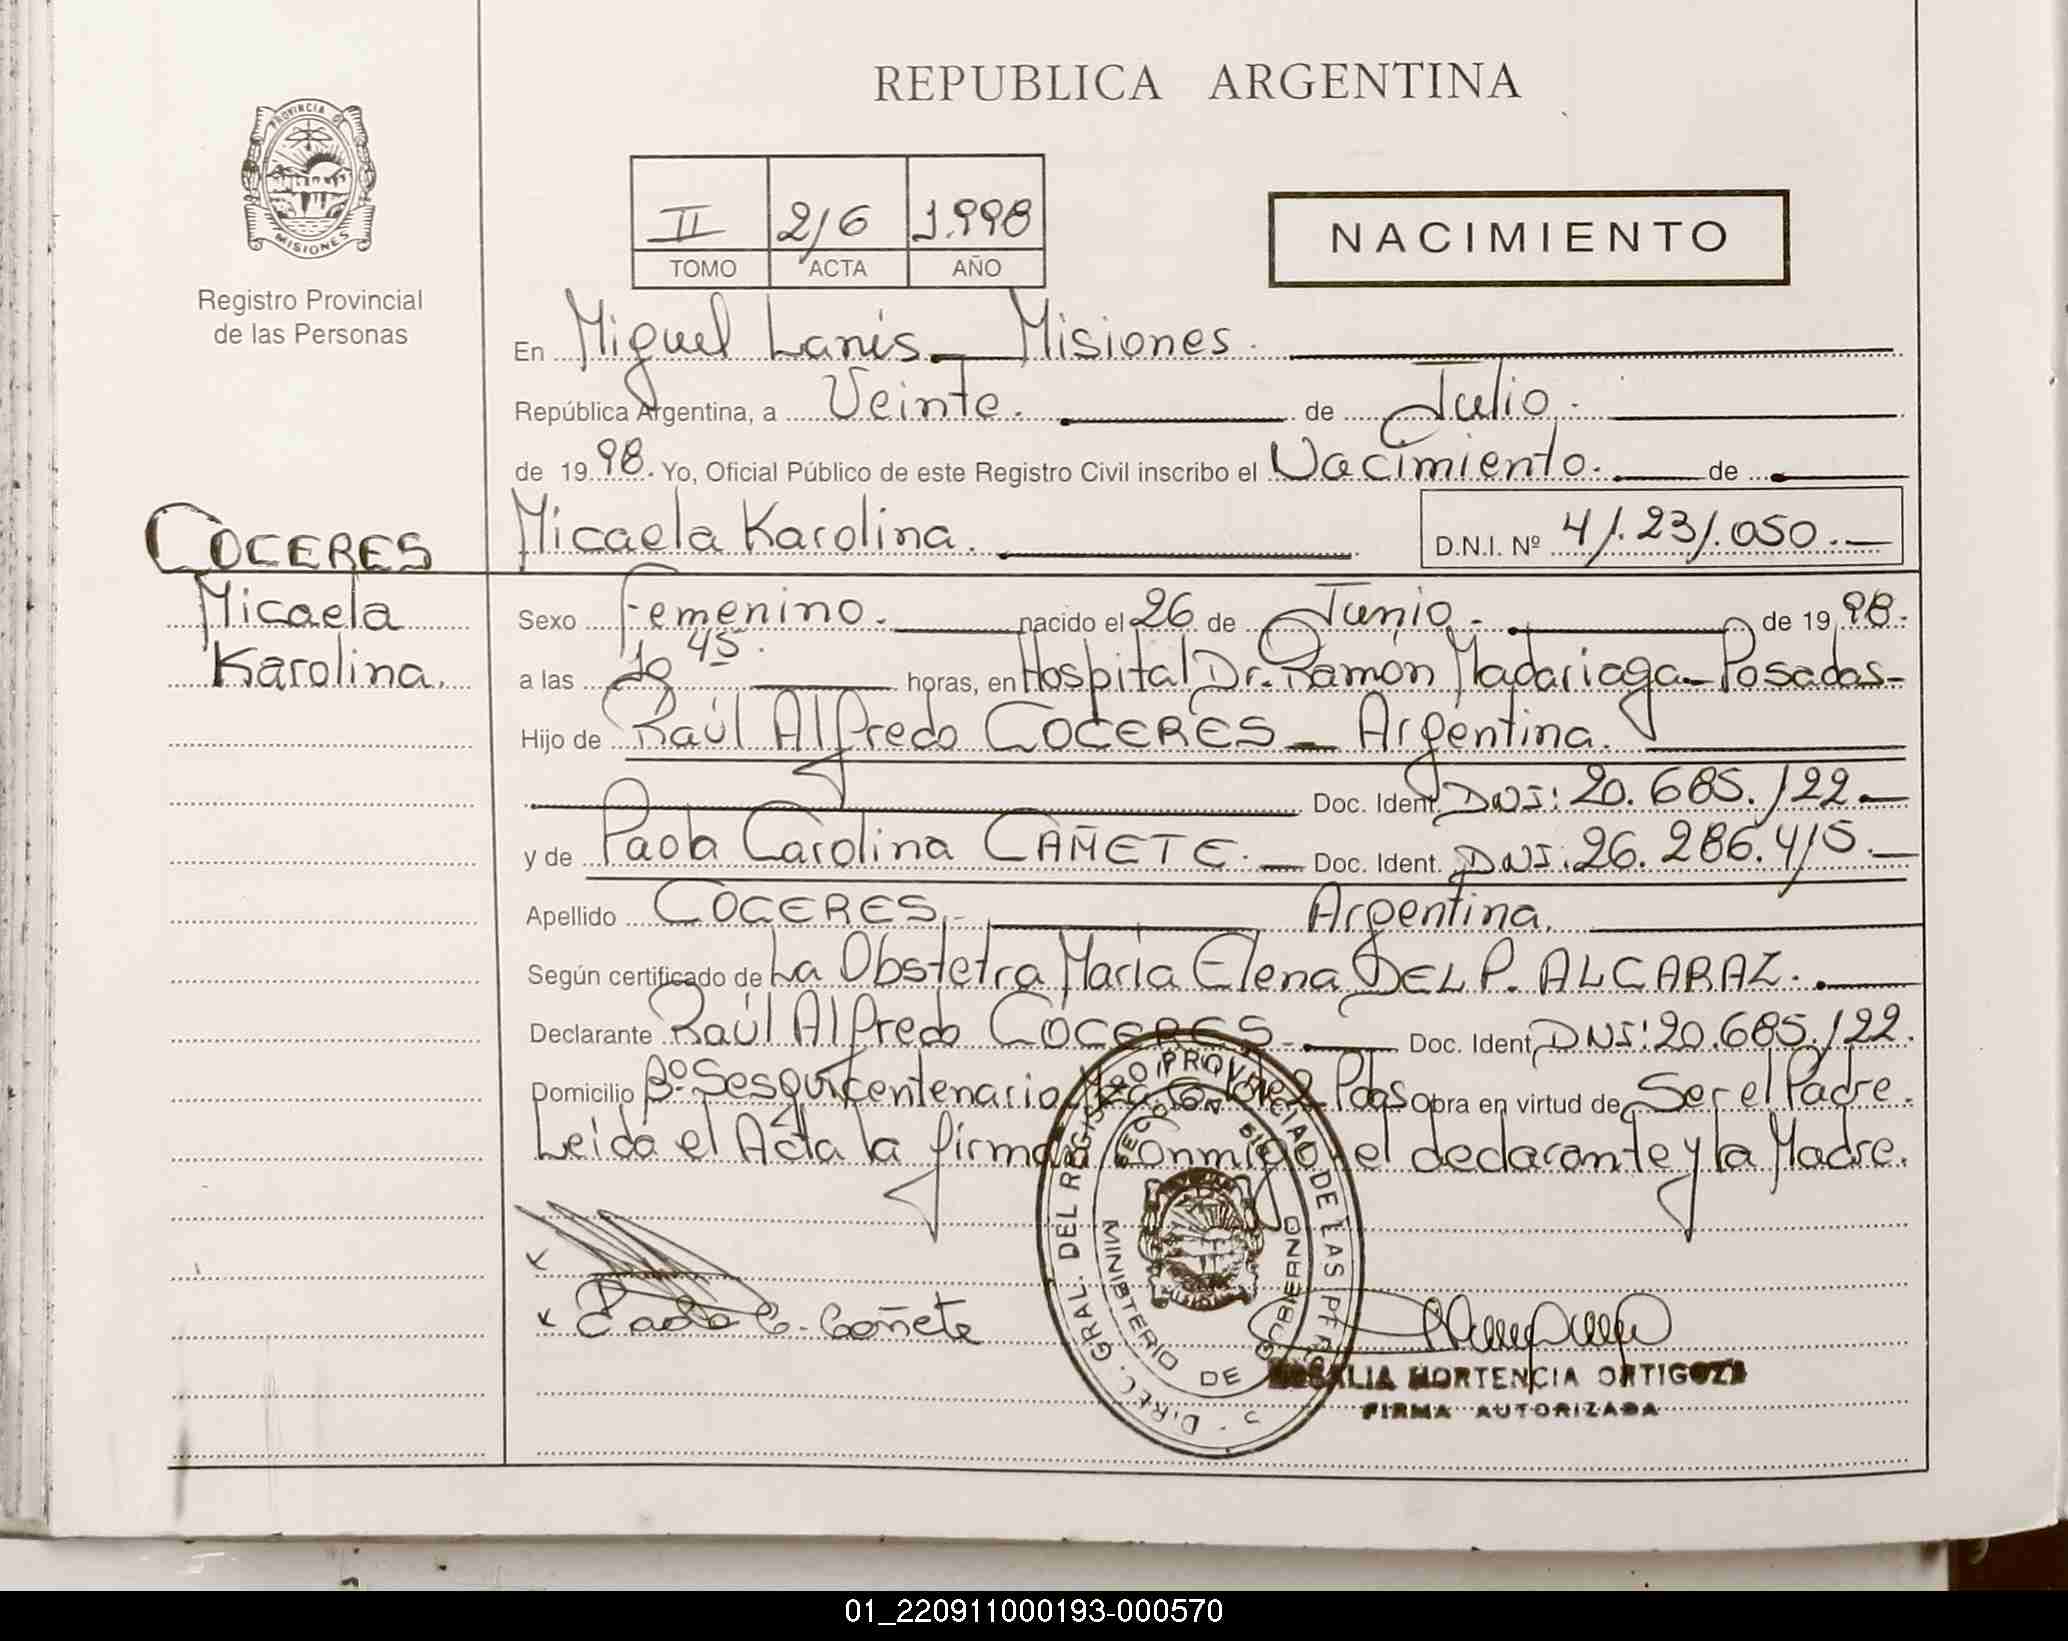 REPUBLICA ARGENTINA
PROVINCIA DE
MISIONES
Registro Provincial
de las Personas
II 216 1.998
TOMO ACTA AÑO
NACIMIENTO
En Miguel Lanús Misiones.
República Argentina, a Veinte. de Julio.
de 19 98. Yo, Oficial Público de este Registro Civil inscribo el Nacimiento. de
COCERES Micaela Karolina. D.N.I. Nº 41.231.050.
Micaela Sexo Femenino. nacido el 26 de Junio. de 19 98.
Karolina. a las 10 45. horas, en Hospital Dr. Ramón Madariaga Posadas
Hijo de Raúl Alfredo COCERES Argentina.
Doc. Ident. DNI: 20.685.122
y de Paola Carolina CAÑETE. Doc. Ident. DNI: 26.286.415.
Apellido COCERES. Argentina.
Según certificado de La Obstetra María Elena DEL P. ALCARAZ.
Declarante Raúl Alfredo COCERES Doc. Ident. DNI: 20.685.122.
Domicilio Bº. Sesquicentenario Pdas Obra en virtud de Ser el Padre.
Leida el Acta la firman conmigo el declarante y la Madre.
Paola C. Cañete
DIREC. GRAL. DEL REGISTRO PROVINCIAL DE LAS PERS
MINISTERIO DE GOBIERNO
ROSALIA HORTENCIA ORTIGOZA
FIRMA AUTORIZADA
01_220911000193-000570